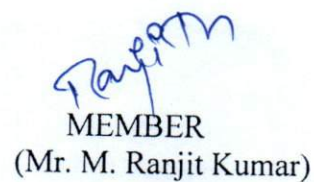 Ranjith
MEMBER
(Mr. M. Ranjit Kumar)